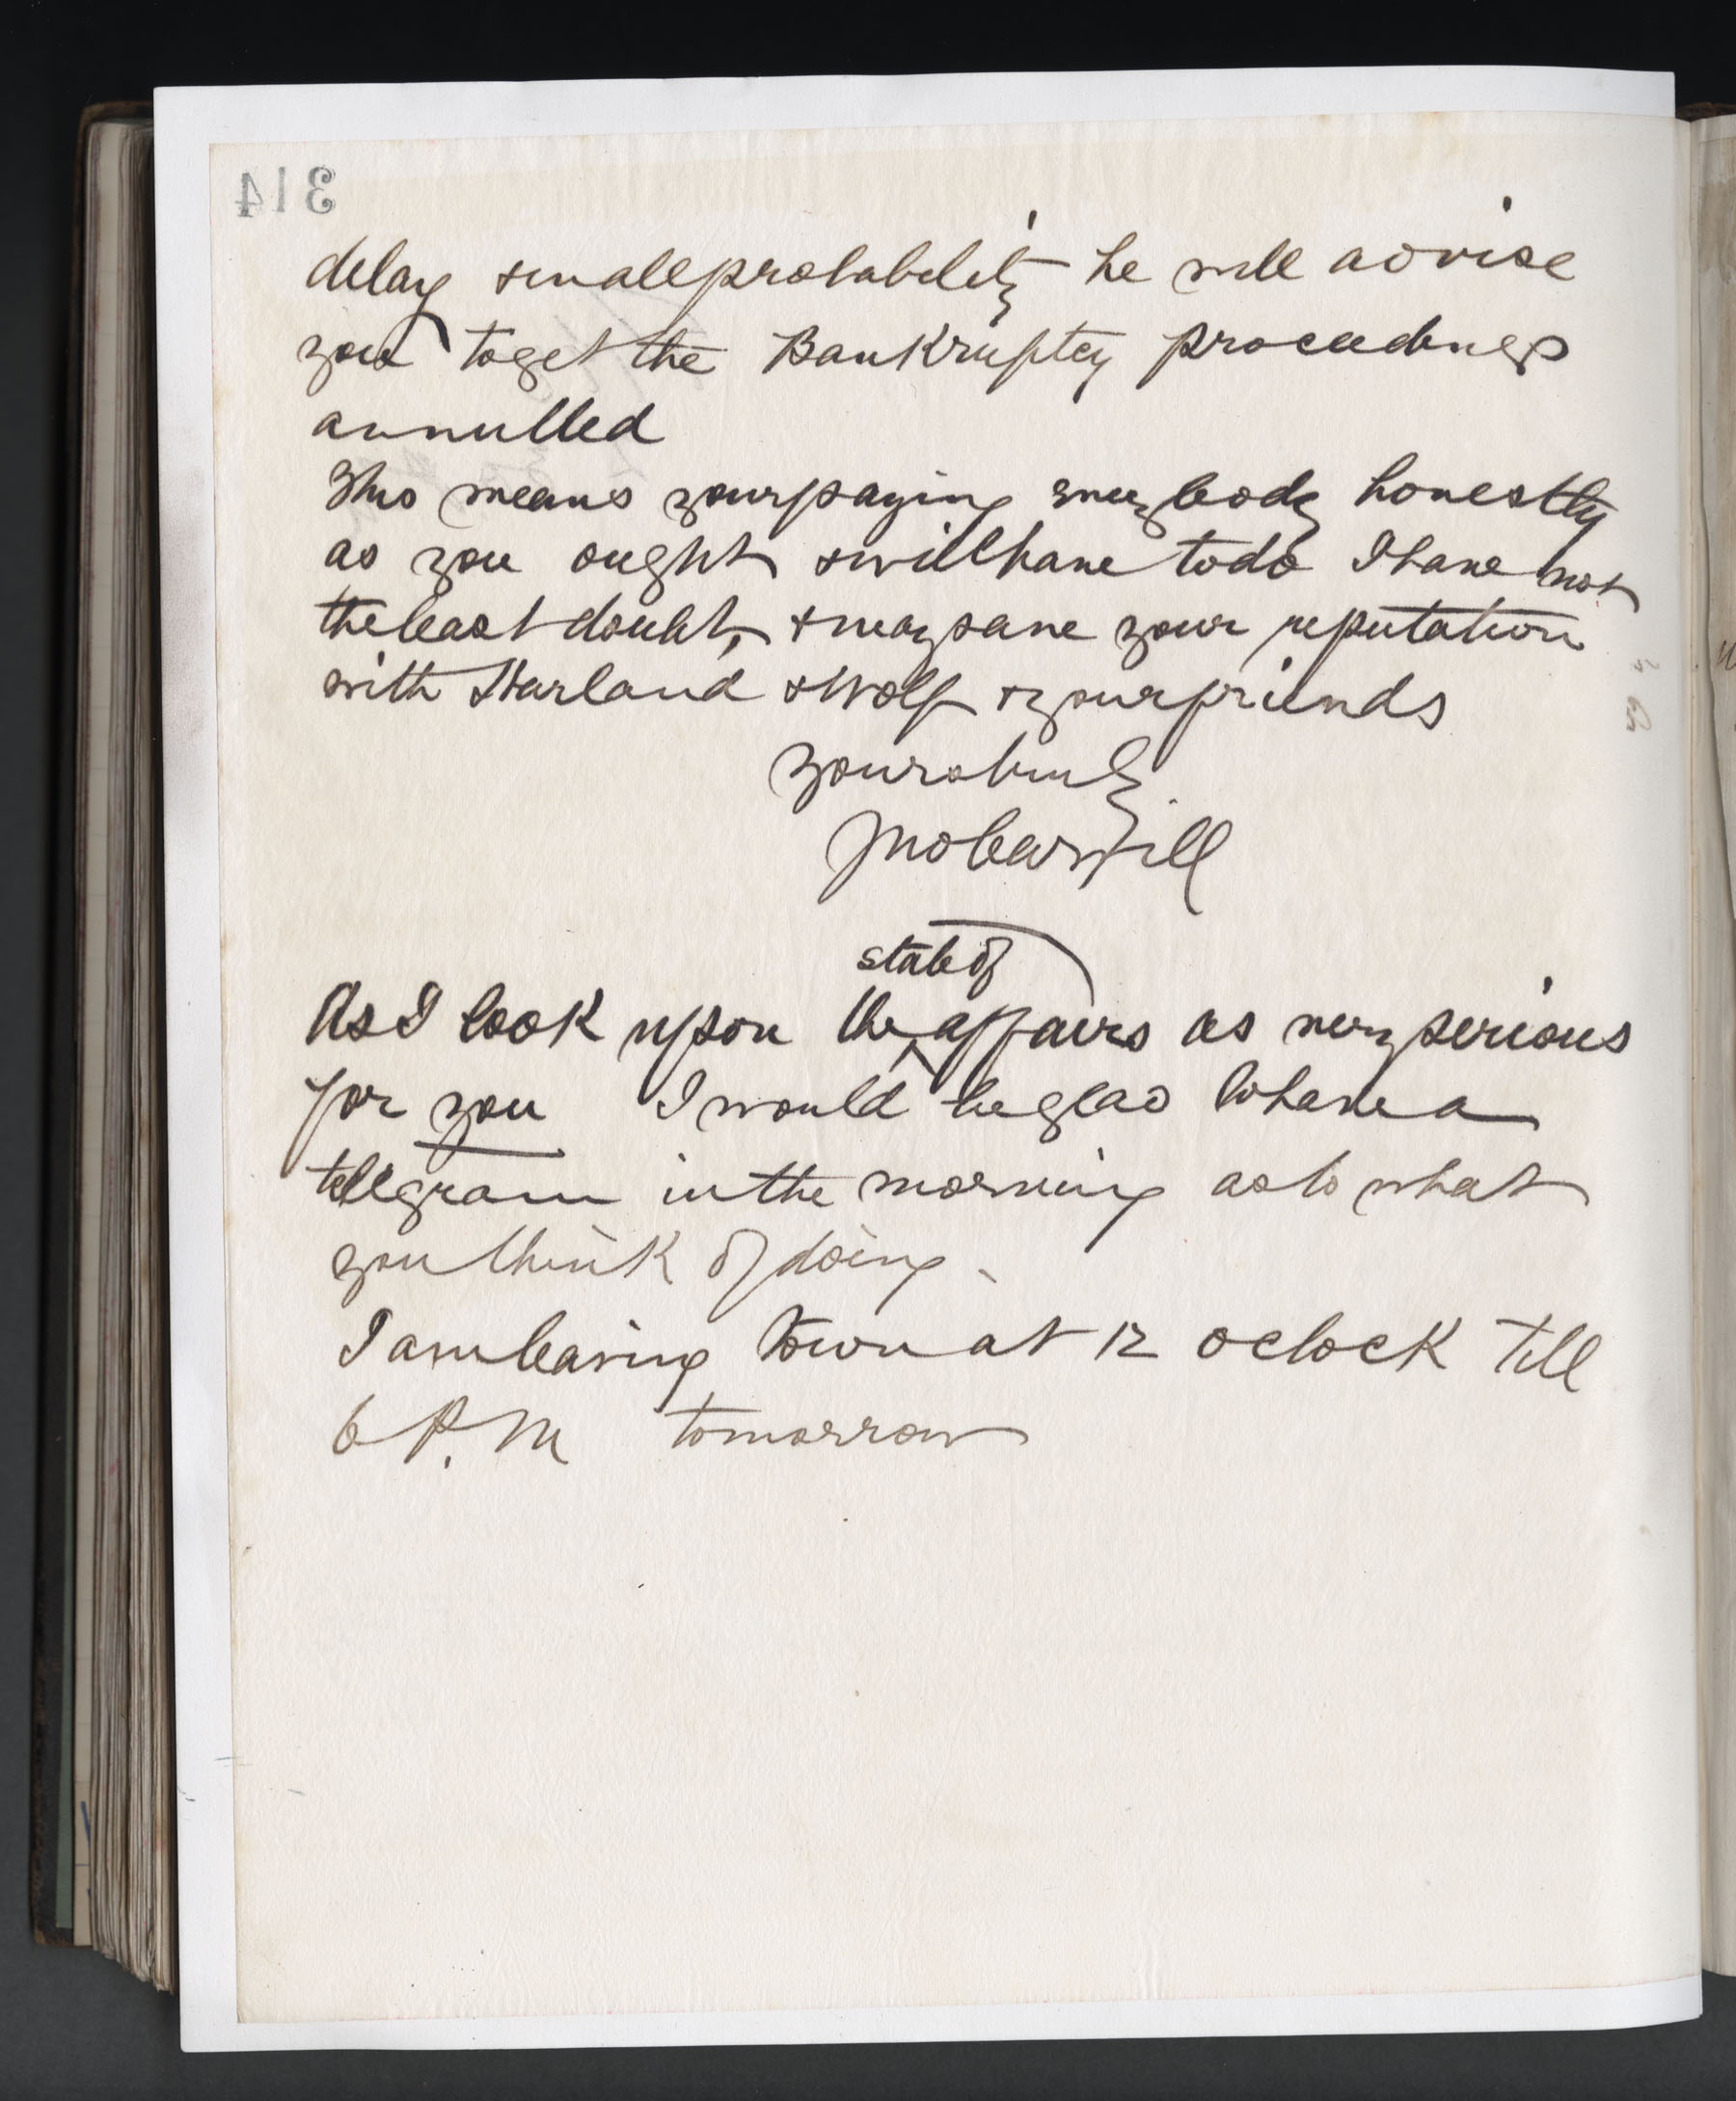 314
delay & in all probability he will advise
you to get the Bankruptcy proceedings
annulled
This means your paying every body honestly
as you ought & will have to do I have not
the least doubt, & may save your reputation
with Harland & Wolf & your friends
yours truly
Jno Carvill
state of
As I look upon the affairs as very serious
for you I would be glad to have a
telegram in the morning as to what
you think of doing.
I am leaving town at 12 oclock till
6 P.M tomorrow